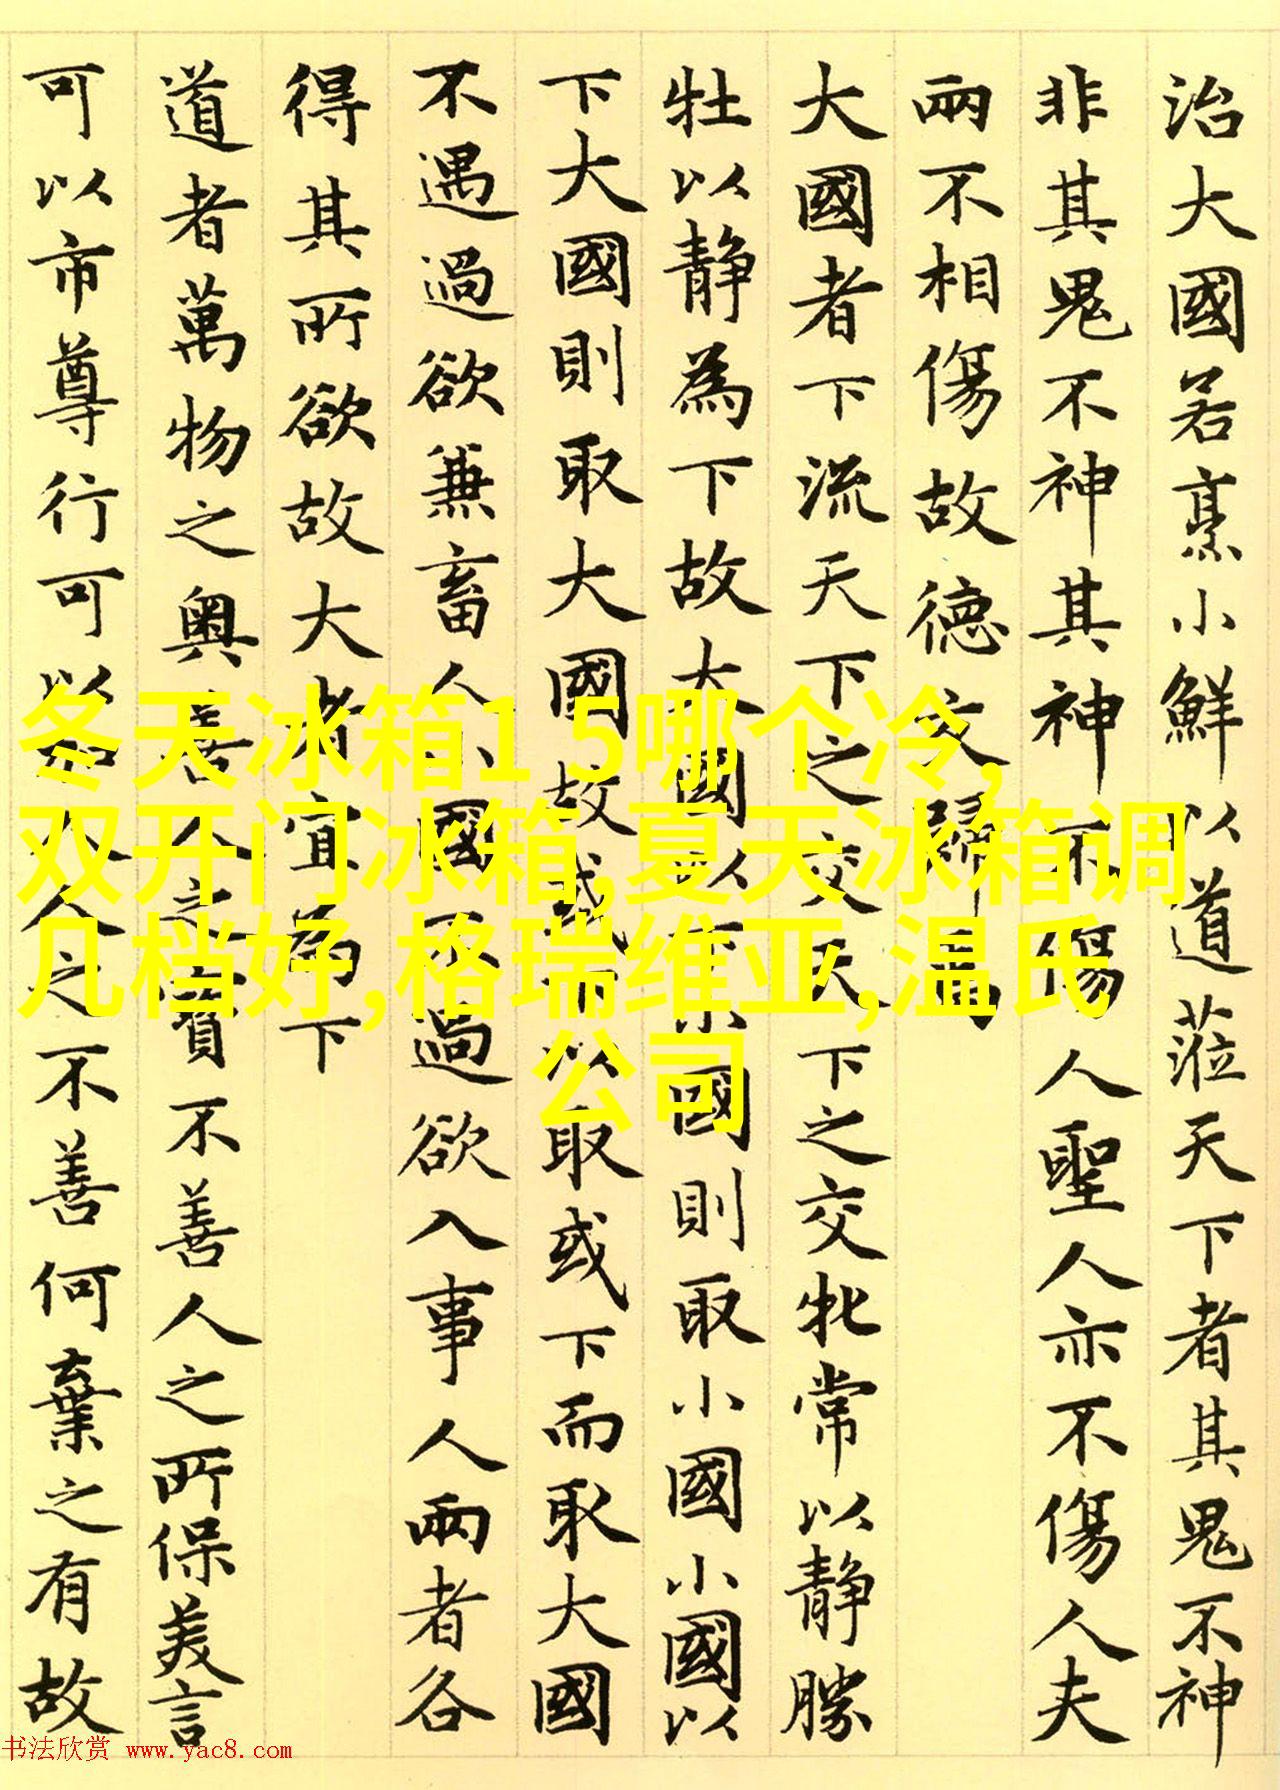 治大國若烹小鮮以道蒞天下者其鬼不神
非其鬼不神其神不傷人聖人亦不傷人夫
兩不相傷故德交歸焉
大國者下流天下之交天下之交牝常以静勝
牡以静為下故大國以下小國則取小國小國以
下大國則取大國故或下以取或下而取大國
不遇過欲兼畜人小國不過欲入事人兩者各
得其所欲故大者宜為下
道者萬物之奥善人之寳不善人之所保美言
可以市尊行可以加人人之不善何棄之有故
冬天冰箱1 5哪个冷,
双开门冰箱,夏天冰箱调
几档好,格瑞维亚,温氏
公司
书法欣赏 www.yac8.com